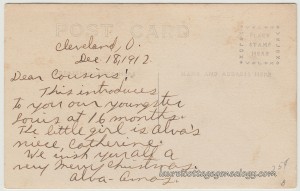 POST CARD
PLACE
STAMP
HERE
Cleveland, O.
Dec. 18, 1912.
Dear Cousins:
This introduces
to you our youngster
Louis at 16 months.
The little girl is Alva's
niece, Catherine.
We wish you all a
very merry Christmas.
Alva-Amos.
NAME AND ADDRESS HERE
laurelcottagegenealogy.com